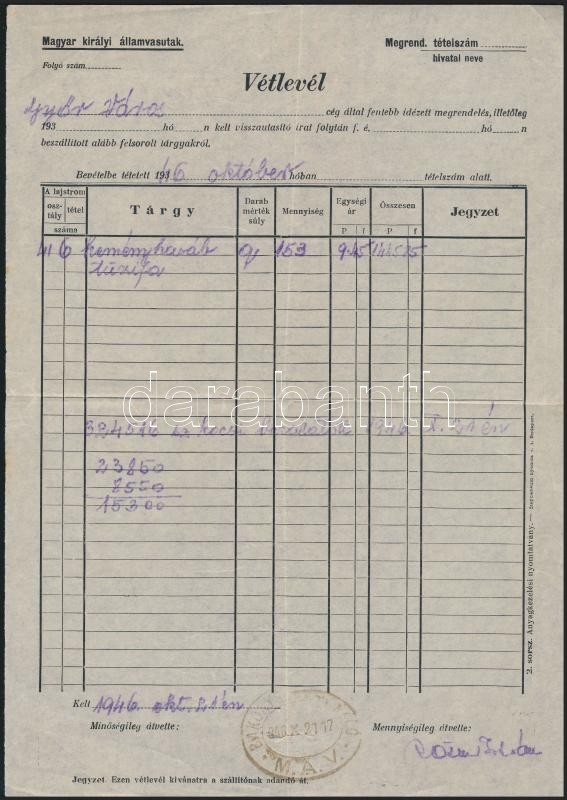 Magyar királyi államvasutak.
Megrend. tételszám
Folyó szám
hivatal neve
Vétlevél
cég által fentebb idézett megrendelés, illetőleg
193 hó n kelt visszautasító irat folytán f. é. hó n
beszállított alább felsorolt tárgyakról.
Bevételbe tétetett 193 46 október hóban tételszám alatt.
A lajstrom
osztály tétel
száma
Tárgy
Darab mérték súly
Mennyiség
Egységi ár
P f
Összesen
P f
Jegyzet
416 Keményhasáb q 153 9.45 1445 85
tűzifa
darabanth
1946 X. 21 én
23850
8550
15300
Kelt 1946. okt. 21 én
Minőségileg átvette:
Mennyiségileg átvette:
M.Á.V.
Jegyzet. Ezen vétlevél kívánatra a szállítónak adandó át.
2. sorsz. Anyagkezelési nyomtatvány.